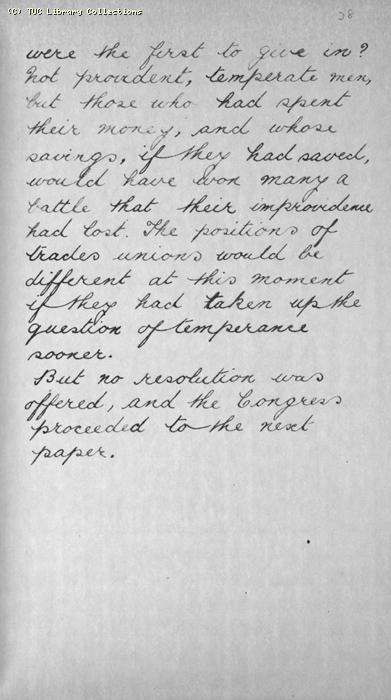 (C) TUC Library Collections
38
were the first to give in?
Not provident, temperate men,
but those who had spent
their money, and whose
savings, if they had saved,
would have won many a
battle that their improvidence
had lost. The positions of
trades unions would be
different at this moment
if they had taken up the
question of temperance
sooner.
But no resolution was
offered, and the Congress
proceeded to the next
paper.